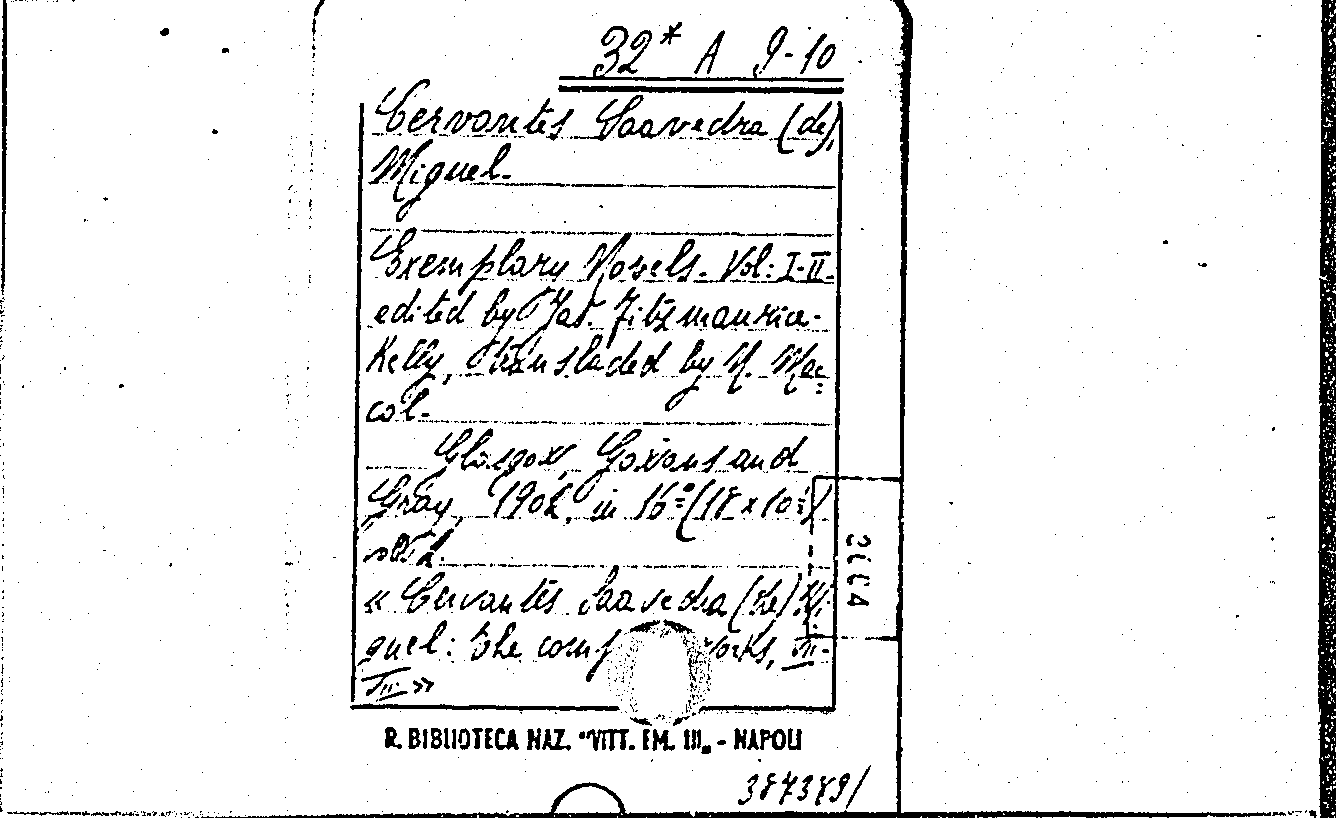 32* A 9-10
Cervantes Saavedra (de),
Miguel.
Exemplary Novels. Vol: I-II.
edited by Jas. Fitzmaurice-
Kelly, translated by N. Mac=
col.
Glasgow, Gowans and
Gray, 190 in 16°=(18 x 10
« Cervantes Saavedra (de) Mi
guel: The comp works, VII-
VIII »
R. BIBLIOTECA NAZ. "VITT. EM. III„ - NAPOLI
387379/